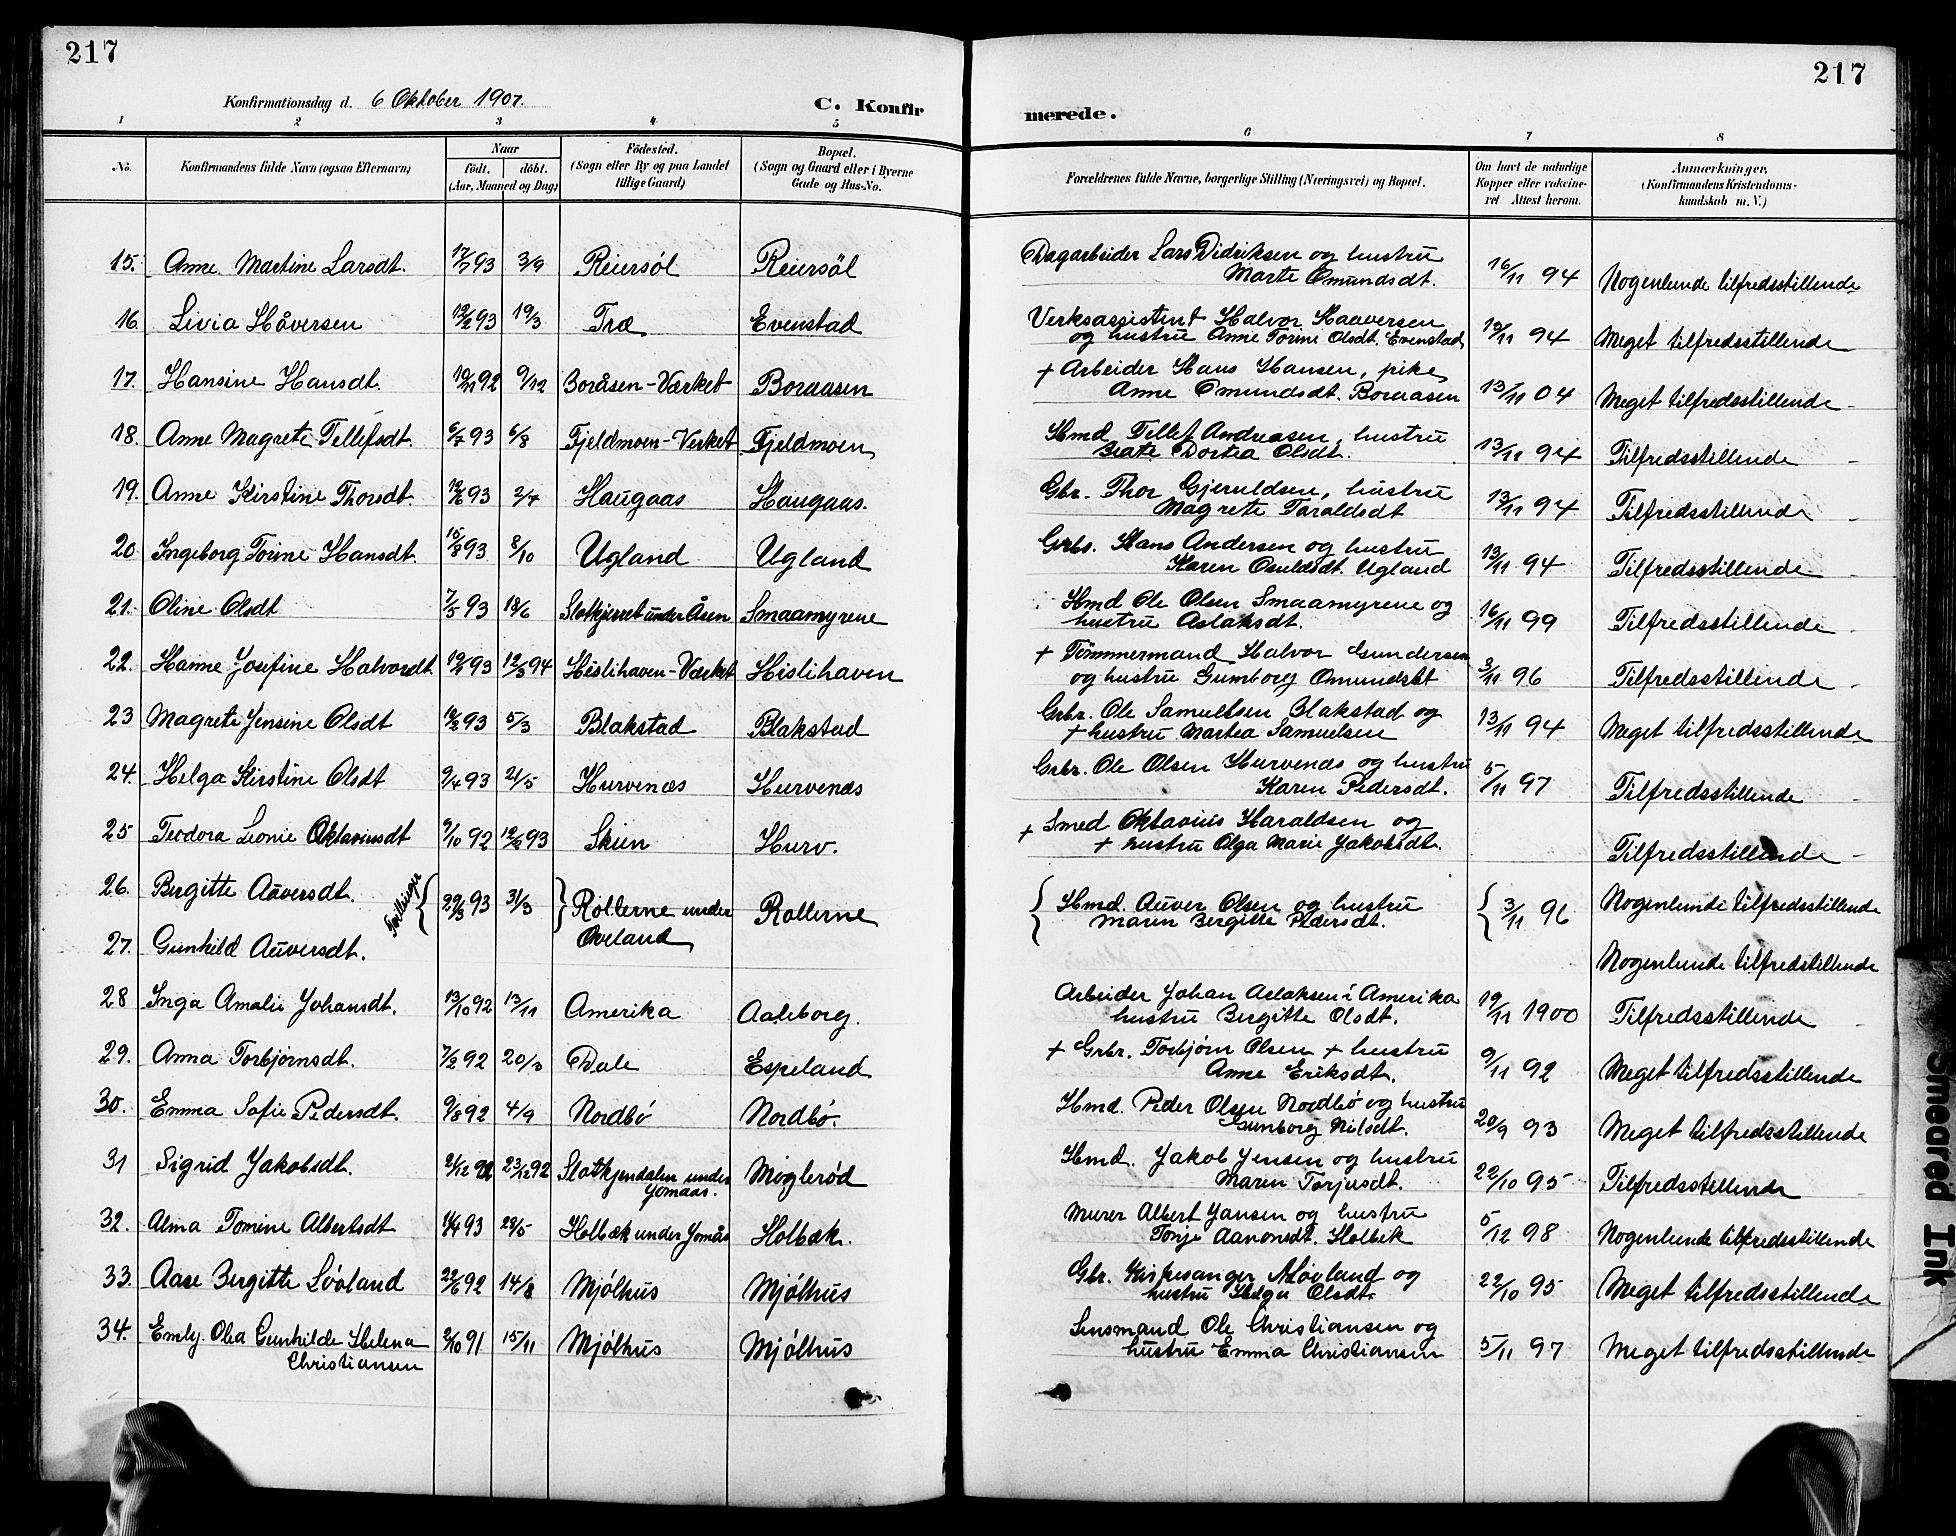 217
217
Konfirmationsdag d. 6 Oktober 1907.
C. Konfirmerede.
1 2 3 4 5 6 7 8
No.
Konfirmandens fulde Navn (ogsaa Efternavn)
Naar
födt. döbt.
(Aar, Maaned og Dag)
Födested.
(Sogn eller By og paa Landet
tillige Gaard)
Bopæl.
(Sogn og Gaard eller i Byerne
Gade og Hus-No.
Forældrenes fulde Navne, borgerlige Stilling (Næringsvei) og Bopæl.
Om havt de naturlige
Kopper eller vakcine-
ret. Attest herom.
Anmærkninger.
(Konfirmandens Kristendoms-
kundskab m. V.)
15. Anne Martine Larsdt. 17/7 93 3/9 Reiersöl Reiersöl Dagarbeider Lars Didriksen og hustru
Marte Omundsdt. 16/11 94 Nogenlunde tilfredsstillende
16. Livia Håversen 12/2 93 19/3 Træ Evenstad Verksassistent Halvor Haaversen
og hustru Anne Torine Olsdt. Evenstad 13/11 94 Meget tilfredsstillende
17. Hansine Hansdt. 10/11 92 9/12 Boråsen-Værket Boraasen + Arbeider Hans Hansen, pike
Anne Omundsdt. Boraasen 13/11 04 Meget tilfredsstillende
18. Anne Magrete Tellefsdt. 6/7 93 6/8 Fjeldmoen-Verket Fjeldmoen Hmd Tellef Andreasen, hustru
Beate Dortea Olsdt. 13/11 94 Tilfredsstillende
19. Anne Kirstine Thorsdt. 93 2/4 Haugaas Haugaas. Gbr. Thor Gjeruldsen, hustru
Magrete Taraldsdt 13/11 94 Tilfredsstillende
20 Ingeborg Torine Hansdt. 15/8 93 8/10 Ugland Ugland Grbr. Hans Andersen og hustru
Karen Osuldsdt. Ugland 13/11 94 Tilfredsstillende
21. Oline Olsdt 7/5 93 18/6 Slotkjerret under Åsen Smaamyrene Hmd Ole Olsen Smaamyrene og
hustru Aslaksdt. 16/11 99 Tilfredsstillende
22. Hanne Josefine Halvorsdt 93 12/3 94 Hislihaven-Værket Hislihaven + Tömmermand Halvor Gundersen
og hustru Gumborg Omundsdt 3/11 96 Tilfredsstillende
23 Magrete Jensine Olsdt 93 5/3 Blakstad Blakstad Grbr. Ole Samuelsen Blakstad og
+ hustru Martea Samuelsen 13/11 94 Meget tilfredsstillende
24. Helga Kirstine Olsdt 9/4 93 21/5 Hurvenæs Hurvenæs Grbr. Ole Olsen Hurvenæs og hustru
Karen Pedersdt. 5/11 97 Tilfredsstillende
25 Teodora Leonie Oktaviusdt 9/10 92 12/2 93 Skien Hurv. + Smed Oktavius Haraldsen og
+ hustru Olga Marie Jakobsdt. Tilfredsstillende
26. Birgitte Auversdt. Tvillinger 93 31/3 Rollerne under
Oveland Rollerne Hmd. Auver Olsen og hustru
Maren Bergitte Pedersdt. 3/11 96 Nogenlunde tilfredsstillende
27. Gunhild Auversdt. Nogenlunde tilfredstillende
28 Inga Amalie Johansdt. 13/10 92 13/11 Amerika Aaleborg. Arbeider Johan Aslaksen i Amerika
hustru Bergitte Olsdt. 19/11 1900 Tilfredsstillende
29. Anna Torbjørnsdt. 7/2 92 20/3 Dale Espeland + Grbr. Torbjørn Olsen + hustru
Anne Eriksdt. 9/11 92 Meget tilfredsstillende
30. Emma Sofie Pedersdt. 9/8 92 4/9 Nordbö Nordbö. Hmd. Peder Olsen Nordbö og hustru
Gunborg Nilsdt. 20/9 93 Meget tilfredsstillende
31 Sigrid Jakobsdt. 2/12 92 Slotkjendalen under
Jomaas. Moglerød Hmd. Jakob Jensen og hustru
Maren Torjusdt. 22/10 95 Tilfredsstillende
32. Alma Tomine Albertsdt 93 28/5 Holbæk under Jomås Holbæk. Murer Albert Jansen og hustru
Tonje Aanonsdt. Holbek 5/12 98 Nogenlunde tilfredsstillende
33. Aase Bergitte Lövland 22/6 92 14/8 Mjölhus Mjölhus Gbr. Kirkesanger N. Lövland og
hustru Helga Olsdt. 22/10 95 Meget tilfredsstillende
34. Emly. Olea Gunhilde Helena
Christiansen 91 15/11 Mjölhus Mjölhus Lensmand Ole Christiansen og
hustru Emma Christiansen 5/11 97 Meget tilfredsstillende
Smeared Ink